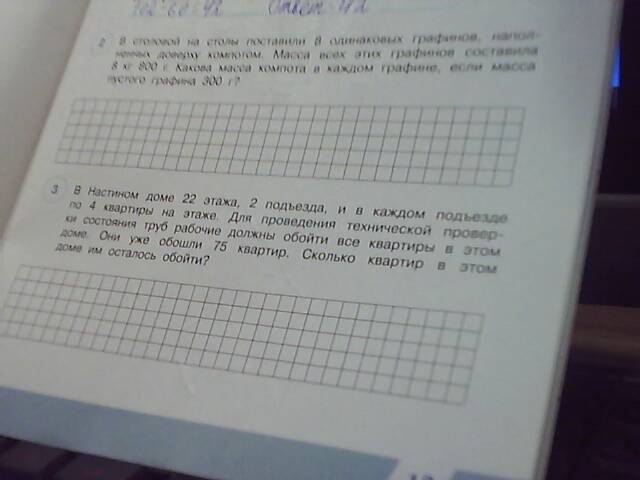 Ответ: 42
2 В столовой на столы поставили 8 одинаковых графинов, напол-
ненных доверху компотом. Масса всех этих графинов составила
8 кг 800 г. Какова масса компота в каждом графине, если масса
пустого графина 300 г?
3 В Настином доме 22 этажа, 2 подъезда, и в каждом подъезде
по 4 квартиры на этаже. Для проведения технической провер-
ки состояния труб рабочие должны обойти все квартиры в этом
доме. Они уже обошли 75 квартир. Сколько квартир в этом
доме им осталось обойти?